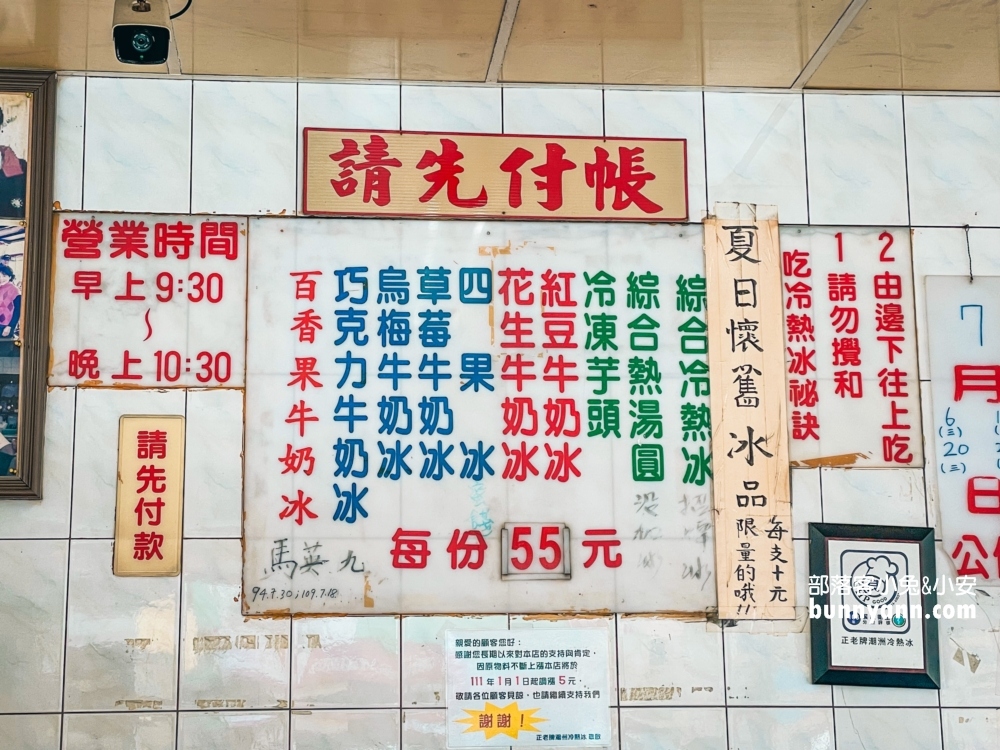 請先付帳
營業時間
早上9:30
~
晚上10:30
請先付款
綜合冷熱冰
綜合熱湯圓
冷凍芋頭
紅豆牛奶冰
花生牛奶冰
四果冰
草莓牛奶冰
烏梅牛奶冰
巧克力牛奶冰
百香果牛奶冰
每份55元
馬英九
94.7.30;109.7.18
夏日懷舊冰品
每支十元
限量的哦!!
2由邊下往上吃
1請勿攪和
吃冷熱冰祕訣
7
月
6
(三)
20
(三)
日
公休
親愛的顧客您好：
感謝您長期以來對本店的支持與肯定，
因原物料不斷上漲本店將於
111年1月1日起調漲5元，
敬請各位顧客見諒，也請繼續支持我們
謝謝！
正老牌潮洲冷熱冰 敬啟
正老牌潮洲冷熱冰
部落客小兔&小安
bunnyann.com